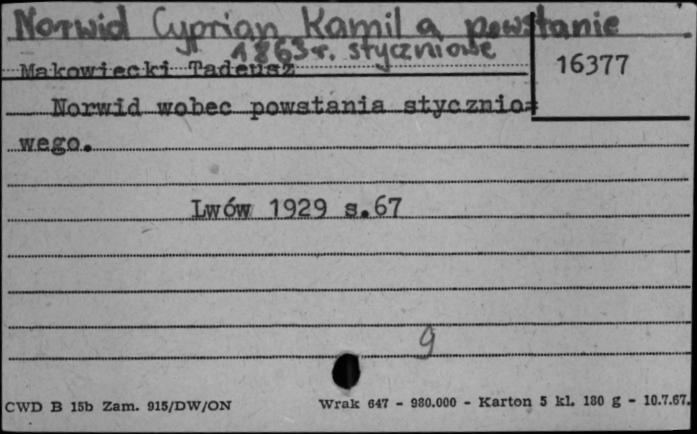 Norwid Cyprian Kamil a powstanie
1863 r. styczniowe
Makowiecki Tadeusz
16377
Norwid wobec powstania stycznio=
wego.
Lwów 1929 s.67
9
CWD B 15b Zam. 915/DW/ON
Wrak 647 - 980.000 - Karton 5 kl. 180 g - 10.7.67.